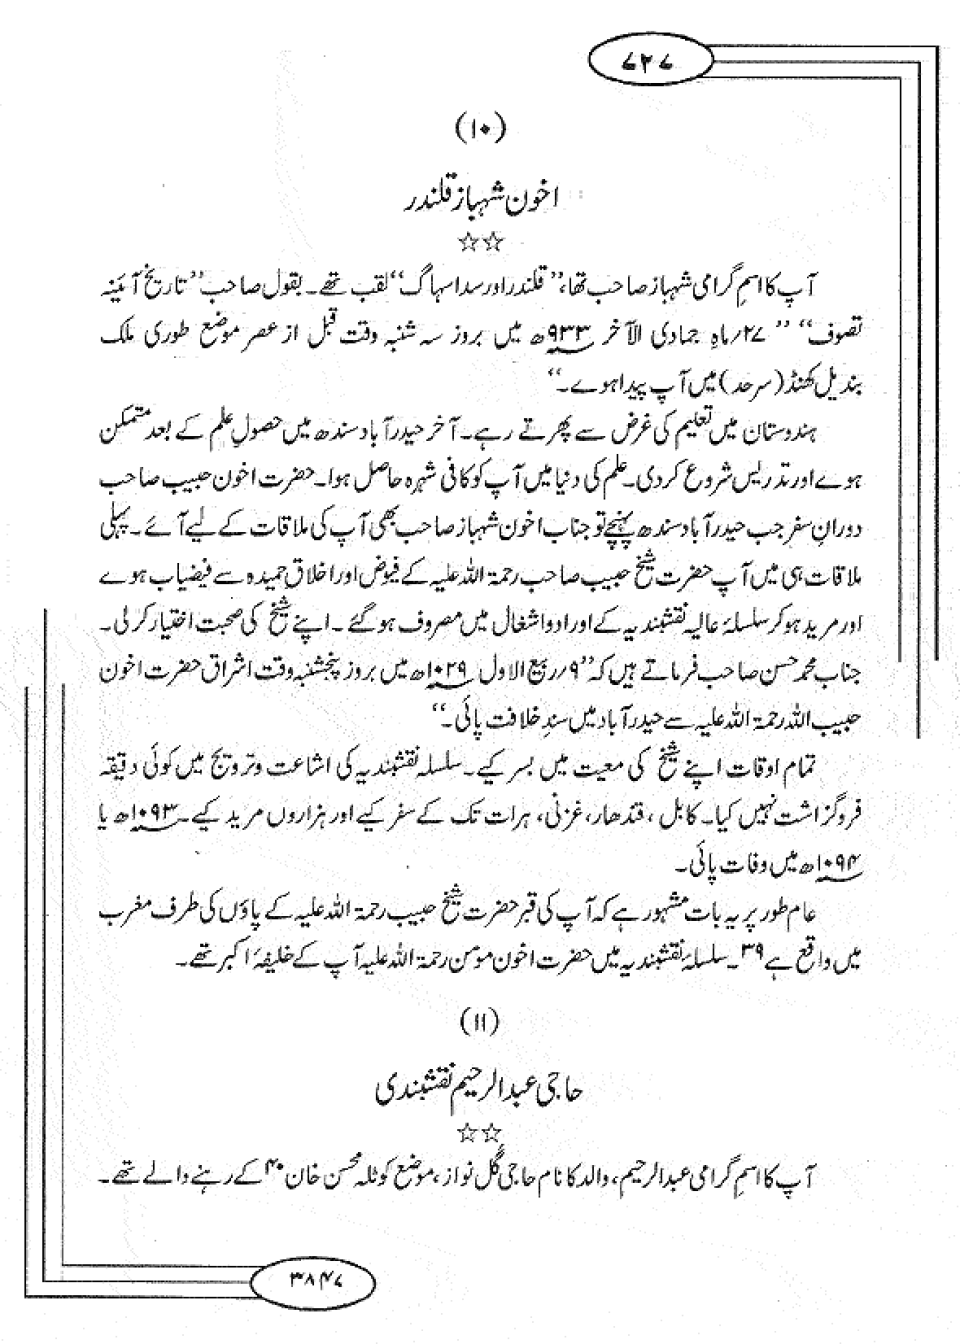 ۷۲۷
(۱۰)
اخون شہباز قلندر
☆☆
آپ کا اسمِ گرامی شہباز صاحب تھا، ’’قلندر اور سدا سہاگ‘‘ لقب تھے۔ بقول صاحب ’’تاریخ آئینہ
تصوف‘‘ ’’۲۷؍ماہِ جمادی الآخر ۹۳۳ھ میں بروز سہ شنبہ وقت قبل از عصر موضع طوری ملک
بندیل کھنڈ (سرحد) میں آپ پیدا ہوے۔‘‘
ہندوستان میں تعلیم کی غرض سے پھرتے رہے۔ آخر حیدرآباد سندھ میں حصولِ علم کے بعد متمکن
ہوے اور تدریس شروع کردی۔ علم کی دنیا میں آپ کو کافی شہرہ حاصل ہوا۔ حضرت اخون حبیب صاحب
دورانِ سفر جب حیدرآباد سندھ پہنچے تو جناب اخون شہباز صاحب بھی آپ کی ملاقات کے لیے آئے۔ پہلی
ملاقات ہی میں آپ حضرت شیخ حبیب صاحب رحمۃ اللہ علیہ کے فیوض اور اخلاق حمیدہ سے فیضیاب ہوے
اور مرید ہوکر سلسلۂ عالیہ نقشبندیہ کے اوراد و اشغال میں مصروف ہوگئے۔ اپنے شیخ کی صحبت اختیار کرلی۔
جناب محمد حسن صاحب فرماتے ہیں کہ ’’۹؍ربیع الاول ۱۰۲۹ھ میں بروز پنجشنبہ وقت اشراق حضرت اخون
حبیب اللہ رحمۃ اللہ علیہ سے حیدرآباد میں سندِ خلافت پائی۔‘‘
تمام اوقات اپنے شیخ کی معیت میں بسر کیے۔ سلسلہ نقشبندیہ کی اشاعت و ترویج میں کوئی دقیقہ
فروگزاشت نہیں کیا۔ کابل، قندھار، غزنی، ہرات تک کے سفر کیے اور ہزاروں مرید کیے۔ ۱۰۹۳ھ یا
۱۰۹۴ھ میں وفات پائی۔
عام طور پر یہ بات مشہور ہے کہ آپ کی قبر حضرت شیخ حبیب رحمۃ اللہ علیہ کے پاؤں کی طرف مغرب
میں واقع ہے ۳۹۔ سلسلۂ نقشبندیہ میں حضرت اخون مومن رحمۃ اللہ علیہ آپ کے خلیفۂ اکبر تھے۔
(۱۱)
حاجی عبدالرحیم نقشبندی
☆☆
آپ کا اسمِ گرامی عبدالرحیم، والد کا نام حاجی گل نواز، موضع کوٹلہ محسن خان ۴۰ کے رہنے والے تھے۔
۳۸۴۷